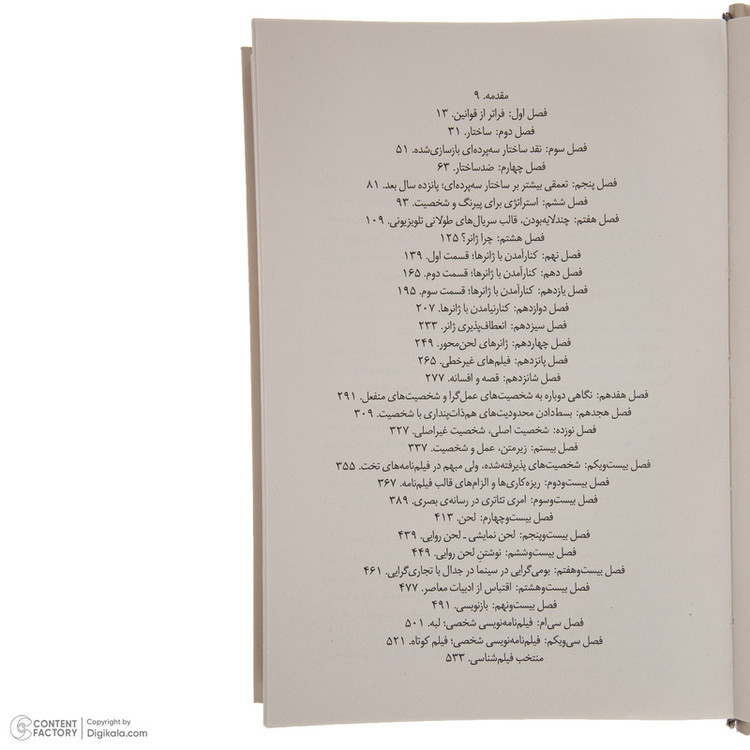 مقدمه. ۹
فصل اول: فراتر از قوانین. ۱۳
فصل دوم: ساختار. ۳۱
فصل سوم: نقد ساختار سه‌پرده‌ای بازسازی‌شده. ۵۱
فصل چهارم: ضدساختار. ۶۳
فصل پنجم: تعمقی بیشتر بر ساختار سه‌پرده‌ای؛ پانزده سال بعد. ۸۱
فصل ششم: استراتژی برای پیرنگ و شخصیت. ۹۳
فصل هفتم: چندلایه‌بودن، قالب سریال‌های طولانی تلویزیونی. ۱۰۹
فصل هشتم: چرا ژانر؟ ۱۲۵
فصل نهم: کنارآمدن با ژانرها؛ قسمت اول. ۱۳۹
فصل دهم: کنارآمدن با ژانرها؛ قسمت دوم. ۱۶۵
فصل یازدهم: کنارآمدن با ژانرها؛ قسمت سوم. ۱۹۵
فصل دوازدهم: کنارنیامدن با ژانرها. ۲۰۷
فصل سیزدهم: انعطاف‌پذیری ژانر. ۲۳۳
فصل چهاردهم: ژانرهای لحن‌محور. ۲۴۹
فصل پانزدهم: فیلم‌های غیرخطی. ۲۶۵
فصل شانزدهم: قصه و افسانه. ۲۷۷
فصل هفدهم: نگاهی دوباره به شخصیت‌های عمل‌گرا و شخصیت‌های منفعل. ۲۹۱
فصل هجدهم: بسط‌دادن محدودیت‌های هم‌ذات‌پنداری با شخصیت. ۳۰۹
فصل نوزده: شخصیت اصلی، شخصیت غیراصلی. ۳۲۷
فصل بیستم: زیرمتن، عمل و شخصیت. ۳۳۷
فصل بیست‌ویکم: شخصیت‌های پذیرفته‌شده، ولی مبهم در فیلم‌نامه‌های تخت. ۳۵۵
فصل بیست‌ودوم: ریزه‌کاری‌ها و الزام‌های قالب فیلم‌نامه. ۳۶۷
فصل بیست‌وسوم: امری تئاتری در رسانه‌ی بصری. ۳۸۹
فصل بیست‌وچهارم: لحن. ۴۱۳
فصل بیست‌وپنجم: لحن نمایشی ـ لحن روایی. ۴۳۹
فصل بیست‌وششم: نوشتنِ لحن روایی. ۴۴۹
فصل بیست‌وهفتم: بومی‌گرایی در سینما در جدال با تجاری‌گرایی. ۴۶۱
فصل بیست‌وهشتم: اقتباس از ادبیات معاصر. ۴۷۷
فصل بیست‌ونهم: بازنویسی. ۴۹۱
فصل سی‌ام: فیلم‌نامه‌نویسی شخصی؛ لبه. ۵۰۱
فصل سی‌ویکم: فیلم‌نامه‌نویسی شخصی؛ فیلم کوتاه. ۵۲۱
منتخب فیلم‌شناسی. ۵۳۳
CONTENT FACTORY
Copyright by Digikala.com